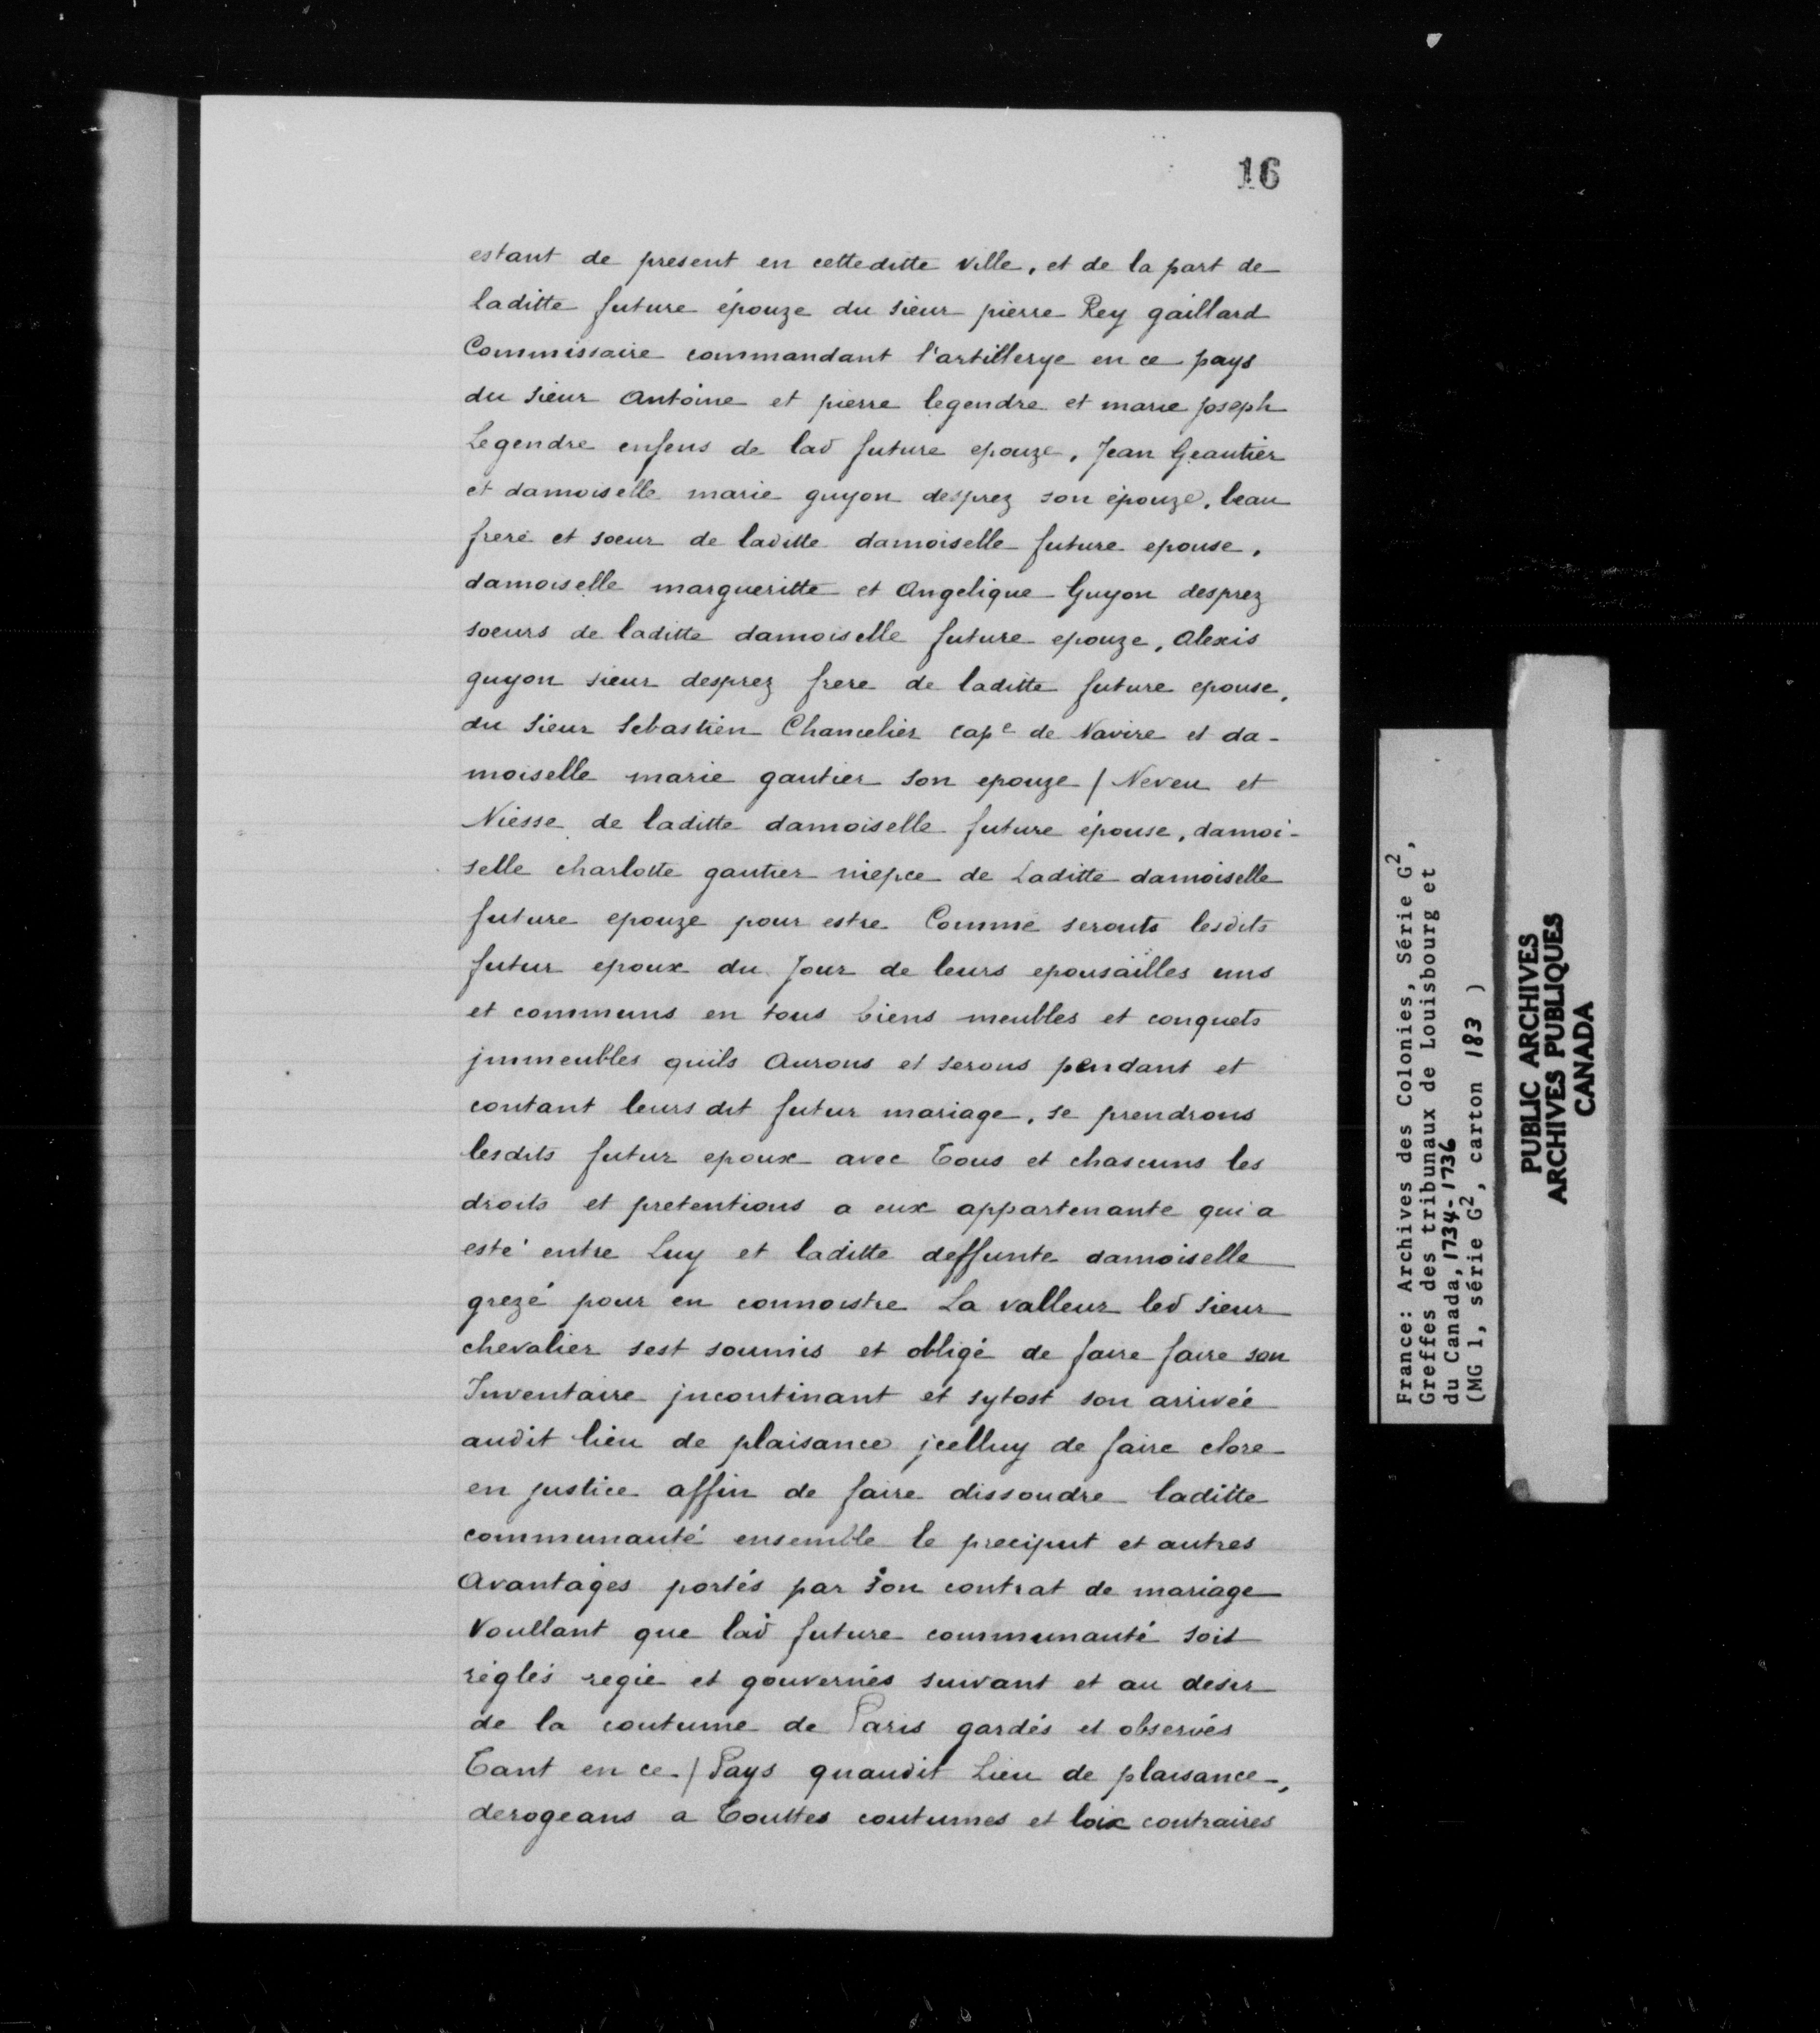 16
estant de present en cetteditte ville, et de la part de
laditte future épouze du sieur pierre Rey gaillard
Commissaire commandant l'artillerye en ce pays
du sieur Antoine et pierre legendre et marie joseph
Legendre enfens de lad future epouze, Jean Geautier
et damoiselle marie guyon desprez son épouze, beau
frere et soeur de laditte damoiselle future epouse,
damoiselle margueritte et Angelique Guyon desprez
soeurs de laditte damoiselle future epouze, Alexis
guyon sieur desprez frere de laditte future epouse,
du sieur Sebastien Chancelier cap^e de Navire et da-
moiselle marie gautier son epouze / Neveu et
Niesse de laditte damoiselle future épouse, damoi-
selle charlotte gautier niepce de Laditte damoiselle
future epouze pour estre Comme seronts lesdits
futur epoux du Jour de leurs epousailles uns
et communs en tous biens meubles et conquets
jmmeubles quils Aurons et serons pendant et
contant leurs dit futur mariage, se prendrons
lesdits futur epoux avec Tous et chascuns les
droits et pretentions a eux appartenante qui a
esté entre Luy et laditte deffunte damoiselle
grezé pour en connoistre La valleur led sieur
chevalier sest soumis et obligé de faire faire son
Inventaire jncontinant et sytost son arrivée
audit lieu de plaisance jcelluy de faire clore
en justice affin de faire dissoudre laditte
communauté ensemble le preciput et autres
Avantages portés par son contrat de mariage
Voullant que lad future communauté soit
réglés regie et gouvernés suivant et au desir
de la coutume de Paris gardés et observés
Tant en ce / Pays quaudit Lieu de plaisance,
derogeans a Touttes coutumes et loix contraires
France: Archives des Colonies, Série G²,
Greffes des tribunaux de Louisbourg et
du Canada, 1734-1736
(MG 1, série G², carton 183 )
PUBLIC ARCHIVES
ARCHIVES PUBLIQUES
CANADA